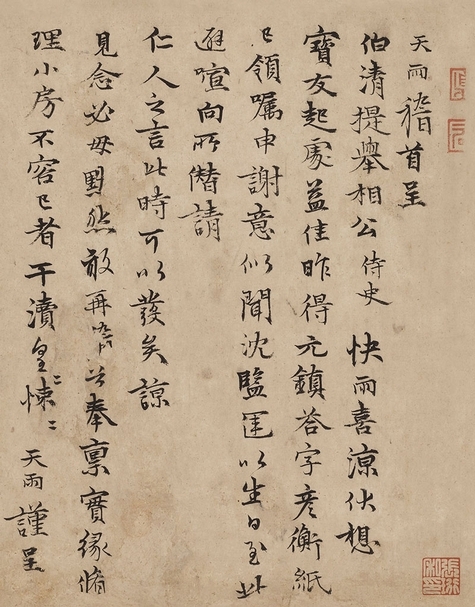 天雨稽首呈
伯清提舉相公侍史 快雨喜涼伏想
寶友起處益佳昨得元鎮荅字彥衡紙
已領囑申謝意似聞沈監運以生日至此
避喧向所僭請
仁人之言此時可以發矣諒
見念必毋默然敢再奉稟實緣脩
理小房不容已者干瀆皇〻悚〻 天雨謹呈